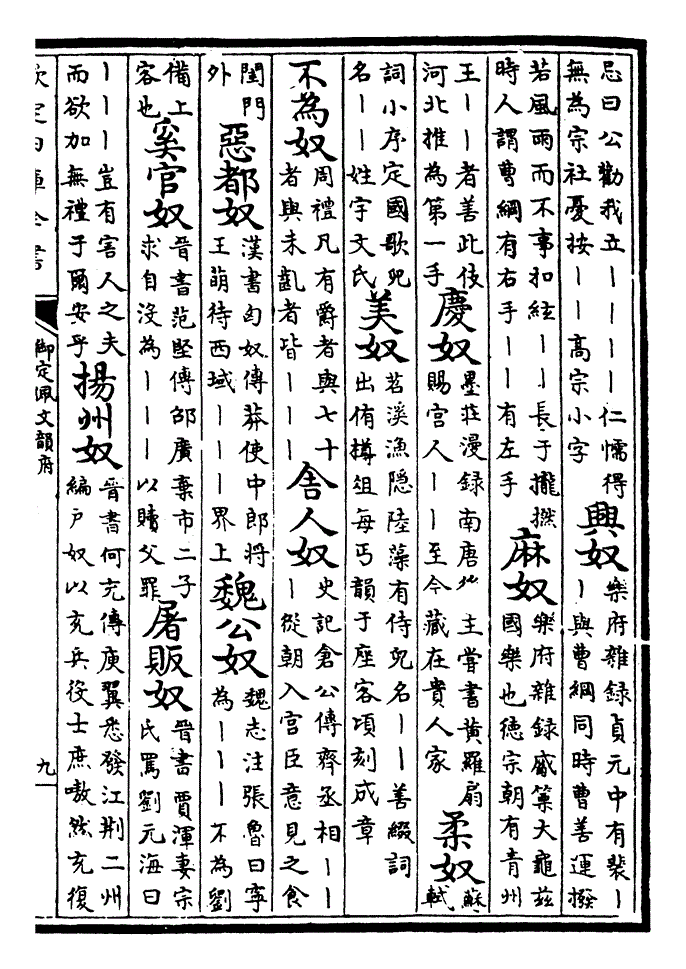 忌曰公勸我立｜｜｜｜仁懦得
無為宗社憂按｜｜高宗小字
興奴
樂府雜録貞元中有裴｜
｜與曹綱同時曹善運撥
若風雨而不事扣絃｜｜長于攏撚
時人謂曹綱有右手｜｜有左手
麻奴
樂府雜録觱篥大龜茲
國樂也德宗朝有青州
王｜｜者善此伎
河北推為第一手
慶奴
墨莊漫録南唐後主嘗書黃羅扇
賜宫人｜｜至今藏在貴人家
柔奴
蘇
軾
詞小序定國歌兒
名｜｜姓宇文氏
美奴
苕溪漁隐陸藻有侍兒名｜｜善綴詞
出侑樽俎每丐韻于座客頃刻成章
不為奴
周禮凡有爵者與七十
者與未齓者皆｜｜｜
舍人奴
史記倉公傳齊丞相｜｜
｜從朝入宫臣意見之食
閨門
外
惡都奴
漢書匈奴傳莽使中郎將
王萌待西域｜｜｜界上
魏公奴
魏志注張魯曰寧
為｜｜｜不為劉
備上
客也
奚官奴
晉書范堅傳邵廣棄市二子
求自没為｜｜｜以贖父罪
屠販奴
晉書賈渾妻宗
氏罵劉元海曰
｜｜｜豈有害人之夫
而欲加無禮于爾安乎
揚州奴
晉書何充傳庾翼悉發江荆二州
編戶奴以充兵役士庶嗷然充復
欽定四庫全書
御定佩文韻府
九